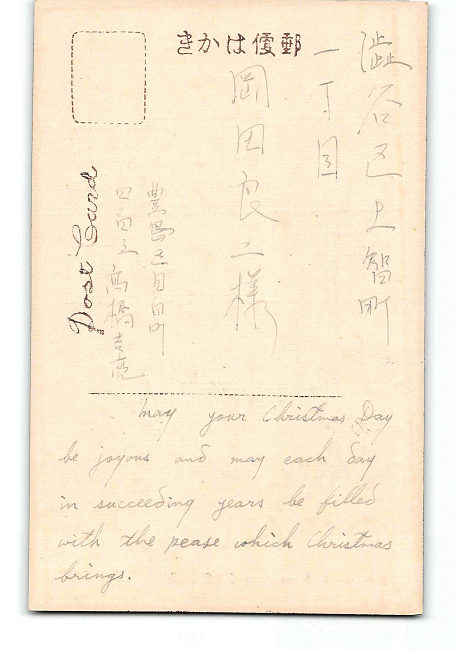 きかは便郵
澁谷区上智町
一丁目
岡田良二様
豊島区目白町
高橋吉亮
Post Card
May your Christmas Day
be joyous and may each day
in succeeding years be filled
with the pease which Christmas
brings.